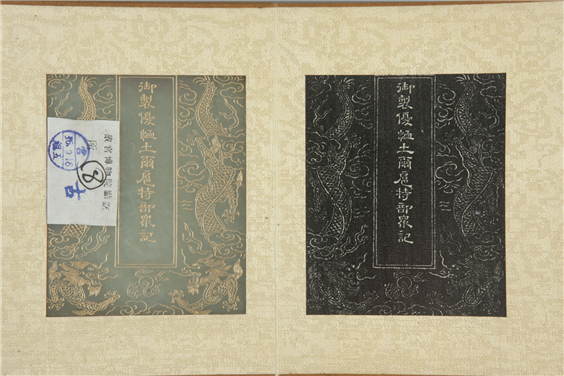 御製優恤土爾扈特部眾記
故宮博物院
8
古
御製優恤土爾扈特部眾記